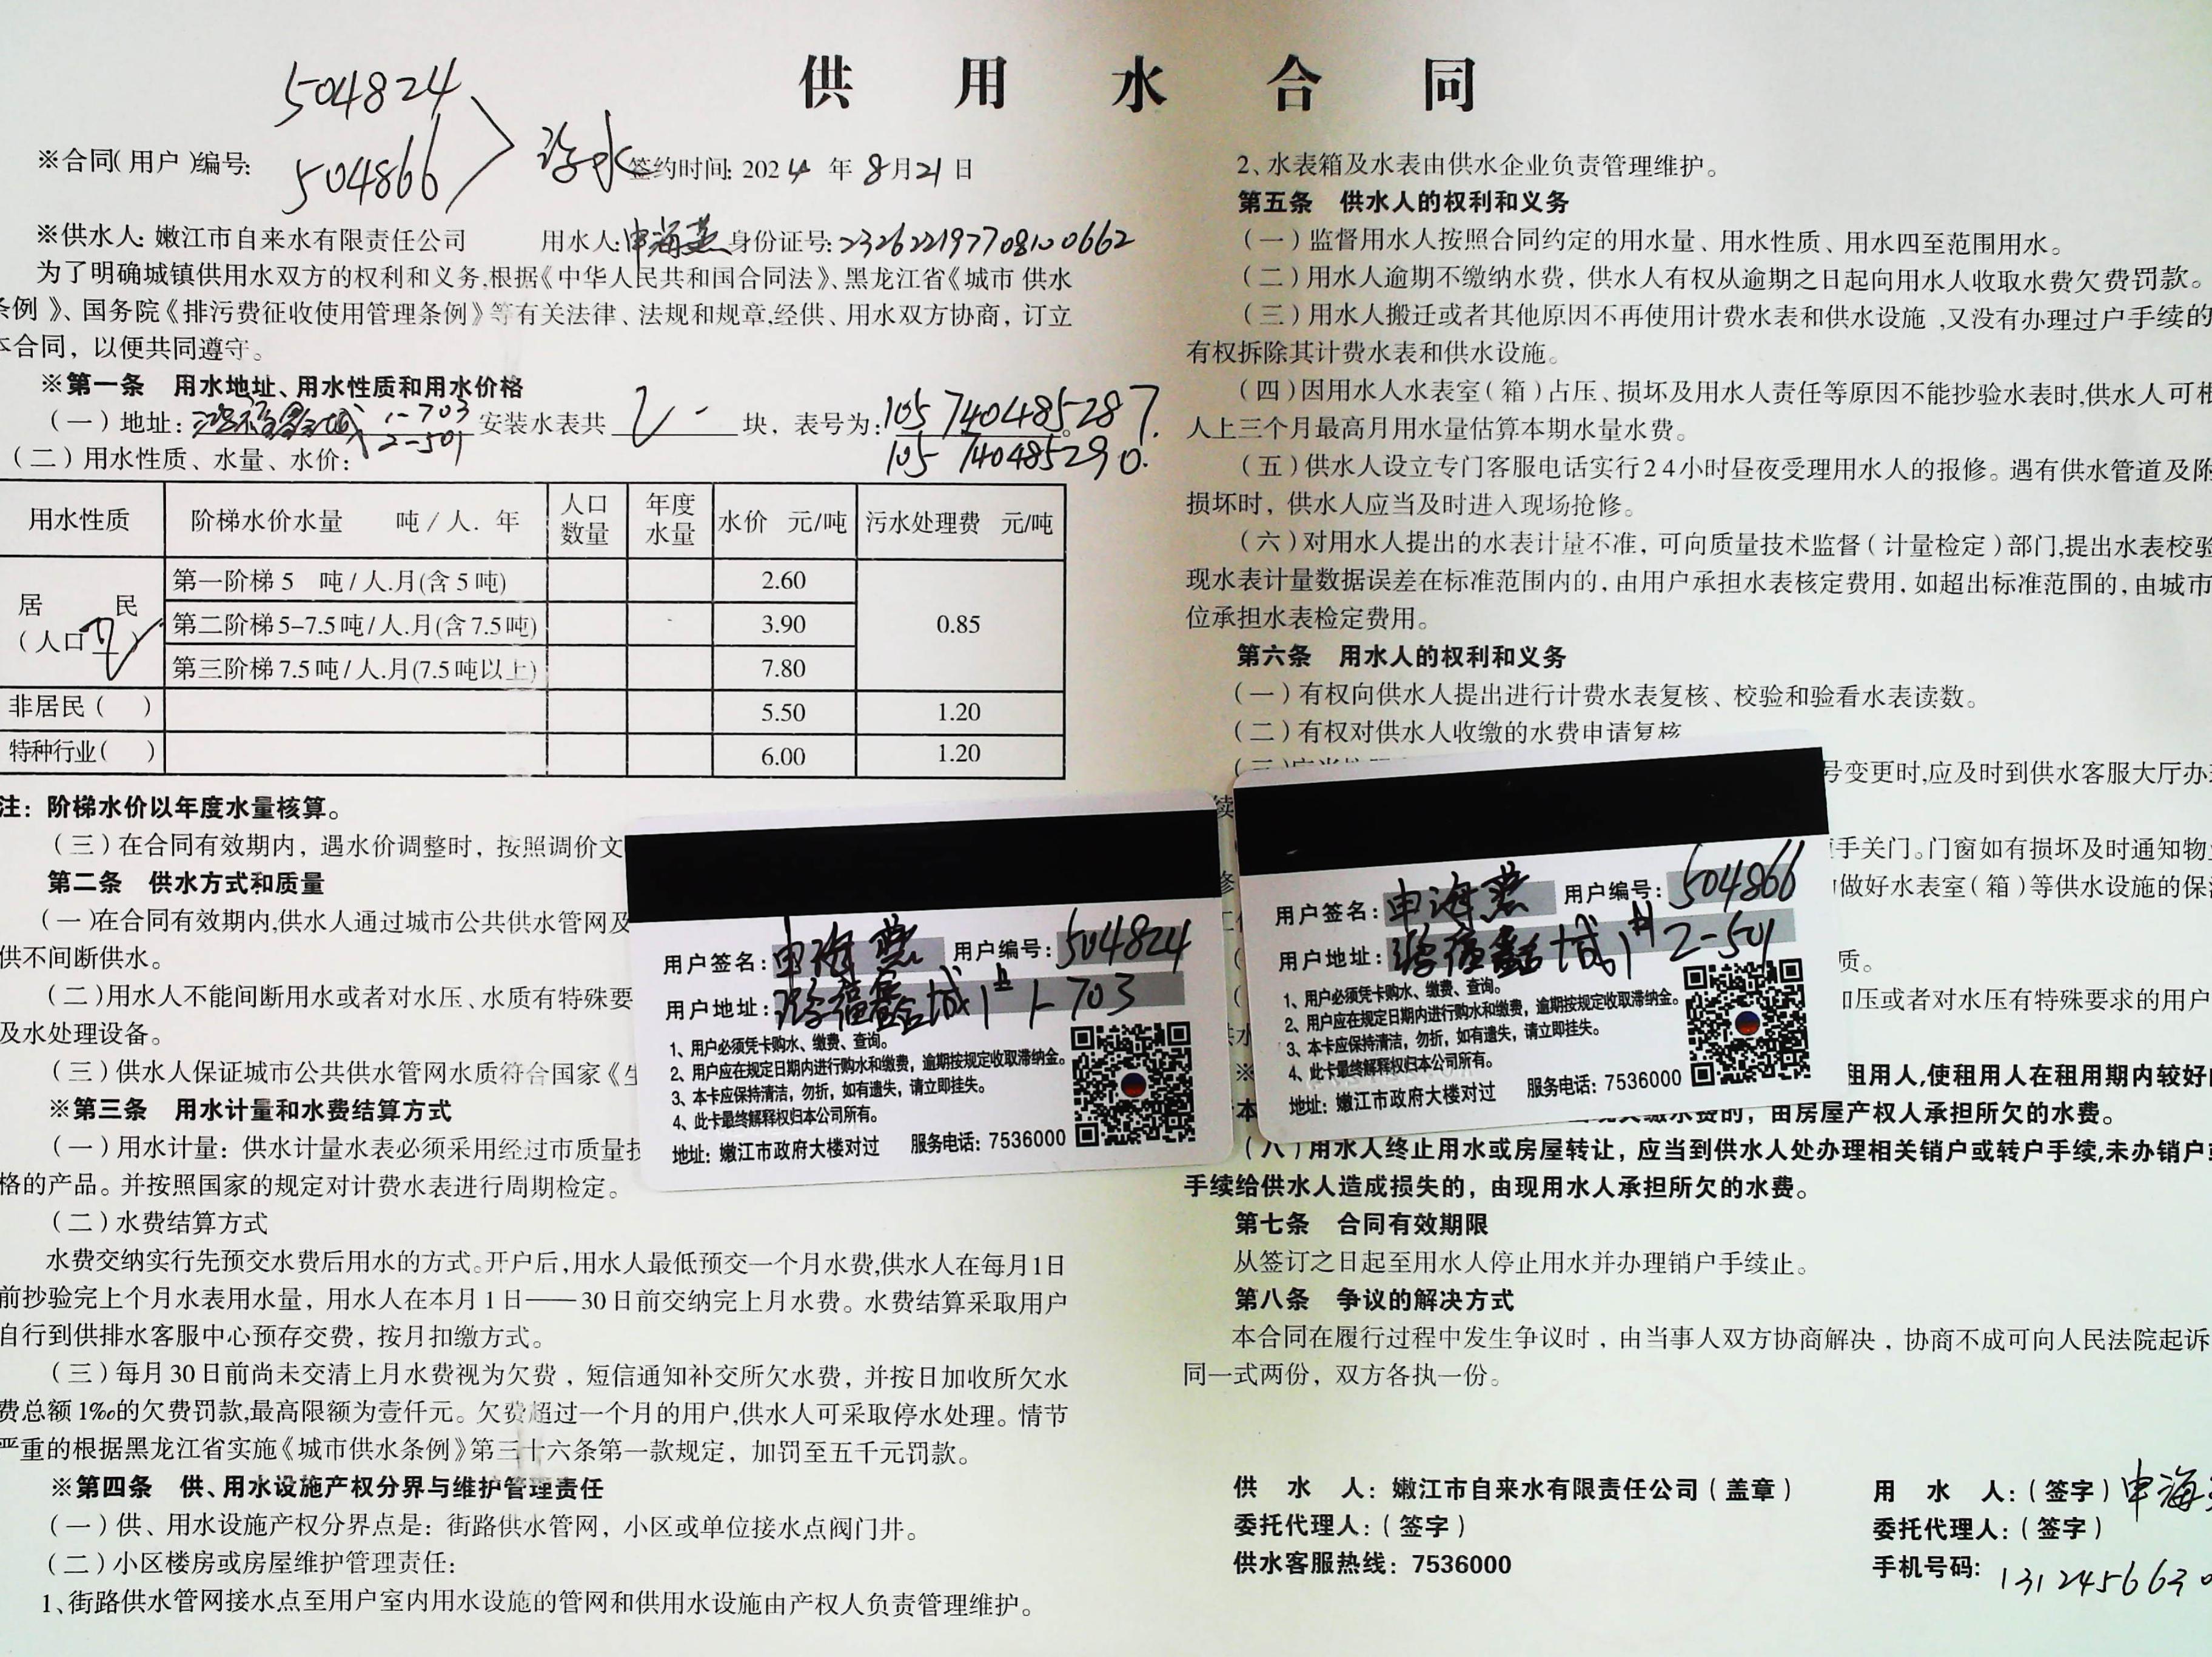 供用水合同
504824
504866
※合同(用户)编号:
签约时间: 2024 年 8月21日
※供水人: 嫩江市自来水有限责任公司 用水人: 申海燕 身份证号: 232622197708100662
为了明确城镇供用水双方的权利和义务,根据《中华人民共和国合同法》、黑龙江省《城市 供水
条例 》、国务院《排污费征收使用管理条例》等有关法律、法规和规章,经供、用水双方协商，订立
本合同，以便共同遵守。
※第一条 用水地址、用水性质和用水价格
(一)地址: 城 1-703 安装水表共 块，表号为: 105 740485287.
2-501 105 740485290.
(二)用水性质、水量、水价:
用水性质 阶梯水价水量 吨/人. 年 人口数量 年度水量 水价 元/吨 污水处理费 元/吨
居 民 (人口 ) 第一阶梯 5 吨/人.月(含 5 吨) 2.60 0.85
第二阶梯 5-7.5吨/人.月(含 7.5吨) 3.90
第三阶梯 7.5 吨/人.月(7.5 吨以上) 7.80
非居民( ) 5.50 1.20
特种行业( ) 6.00 1.20
注：阶梯水价以年度水量核算。
(三)在合同有效期内，遇水价调整时，按照调价文
第二条 供水方式和质量
(一)在合同有效期内,供水人通过城市公共供水管网及
供不间断供水。
(二)用水人不能间断用水或者对水压、水质有特殊要
及水处理设备。
(三)供水人保证城市公共供水管网水质符合国家《生
※第三条 用水计量和水费结算方式
(一)用水计量：供水计量水表必须采用经过市质量技
格的产品。并按照国家的规定对计费水表进行周期检定。
(二)水费结算方式
水费交纳实行先预交水费后用水的方式。开户后,用水人最低预交一个月水费,供水人在每月1日
前抄验完上个月水表用水量，用水人在本月1日——30日前交纳完上月水费。水费结算采取用户
自行到供排水客服中心预存交费，按月扣缴方式。
(三)每月30日前尚未交清上月水费视为欠费，短信通知补交所欠水费，并按日加收所欠水
费总额 1‰的欠费罚款,最高限额为壹仟元。欠费超过一个月的用户,供水人可采取停水处理。情节
严重的根据黑龙江省实施《城市供水条例》第三十六条第一款规定，加罚至五千元罚款。
※第四条 供、用水设施产权分界与维护管理责任
(一)供、用水设施产权分界点是：街路供水管网，小区或单位接水点阀门井。
(二)小区楼房或房屋维护管理责任:
1、街路供水管网接水点至用户室内用水设施的管网和供用水设施由产权人负责管理维护。
2、水表箱及水表由供水企业负责管理维护。
第五条 供水人的权利和义务
(一)监督用水人按照合同约定的用水量、用水性质、用水四至范围用水。
(二)用水人逾期不缴纳水费，供水人有权从逾期之日起向用水人收取水费欠费罚款。
(三)用水人搬迁或者其他原因不再使用计费水表和供水设施 ,又没有办理过户手续的
有权拆除其计费水表和供水设施。
(四)因用水人水表室(箱)占压、损坏及用水人责任等原因不能抄验水表时,供水人可根
人上三个月最高月用水量估算本期水量水费。
(五)供水人设立专门客服电话实行24小时昼夜受理用水人的报修。遇有供水管道及附
损坏时，供水人应当及时进入现场抢修。
(六)对用水人提出的水表计量不准，可向质量技术监督(计量检定)部门,提出水表校验
现水表计量数据误差在标准范围内的,由用户承担水表核定费用,如超出标准范围的,由城市
位承担水表检定费用。
第六条 用水人的权利和义务
(一)有权向供水人提出进行计费水表复核、校验和验看水表读数。
(二)有权对供水人收缴的水费申请复核
号变更时,应及时到供水客服大厅办
手关门。门窗如有损坏及时通知物
做好水表室(箱)等供水设施的保
质。
压或者对水压有特殊要求的用户
租用人,使租用人在租用期内较好
缴水费的，由房屋产权人承担所欠的水费。
(八)用水人终止用水或房屋转让，应当到供水人处办理相关销户或转户手续,未办销户
手续给供水人造成损失的，由现用水人承担所欠的水费。
第七条 合同有效期限
从签订之日起至用水人停止用水并办理销户手续止。
第八条 争议的解决方式
本合同在履行过程中发生争议时，由当事人双方协商解决，协商不成可向人民法院起诉
同一式两份，双方各执一份。
供 水 人：嫩江市自来水有限责任公司(盖章) 用 水 人：(签字) 申海
委托代理人：(签字) 委托代理人：(签字)
供水客服热线：7536000 手机号码: 1312456630
用户签名: 申海燕 用户编号: 504824
用户地址: 城1# 1-703
1、用户必须凭卡购水、缴费、查询。
2、用户应在规定日期内进行购水和缴费，逾期按规定收取滞纳金。
3、本卡应保持清洁，勿折，如有遗失，请立即挂失。
4、此卡最终解释权归本公司所有。
地址: 嫩江市政府大楼对过 服务电话: 7536000
用户签名: 申海燕 用户编号: 504866
用户地址: 城1# 2-501
1、用户必须凭卡购水、缴费、查询。
2、用户应在规定日期内进行购水和缴费，逾期按规定收取滞纳金。
3、本卡应保持清洁，勿折，如有遗失，请立即挂失。
4、此卡最终解释权归本公司所有。
地址: 嫩江市政府大楼对过 服务电话: 7536000